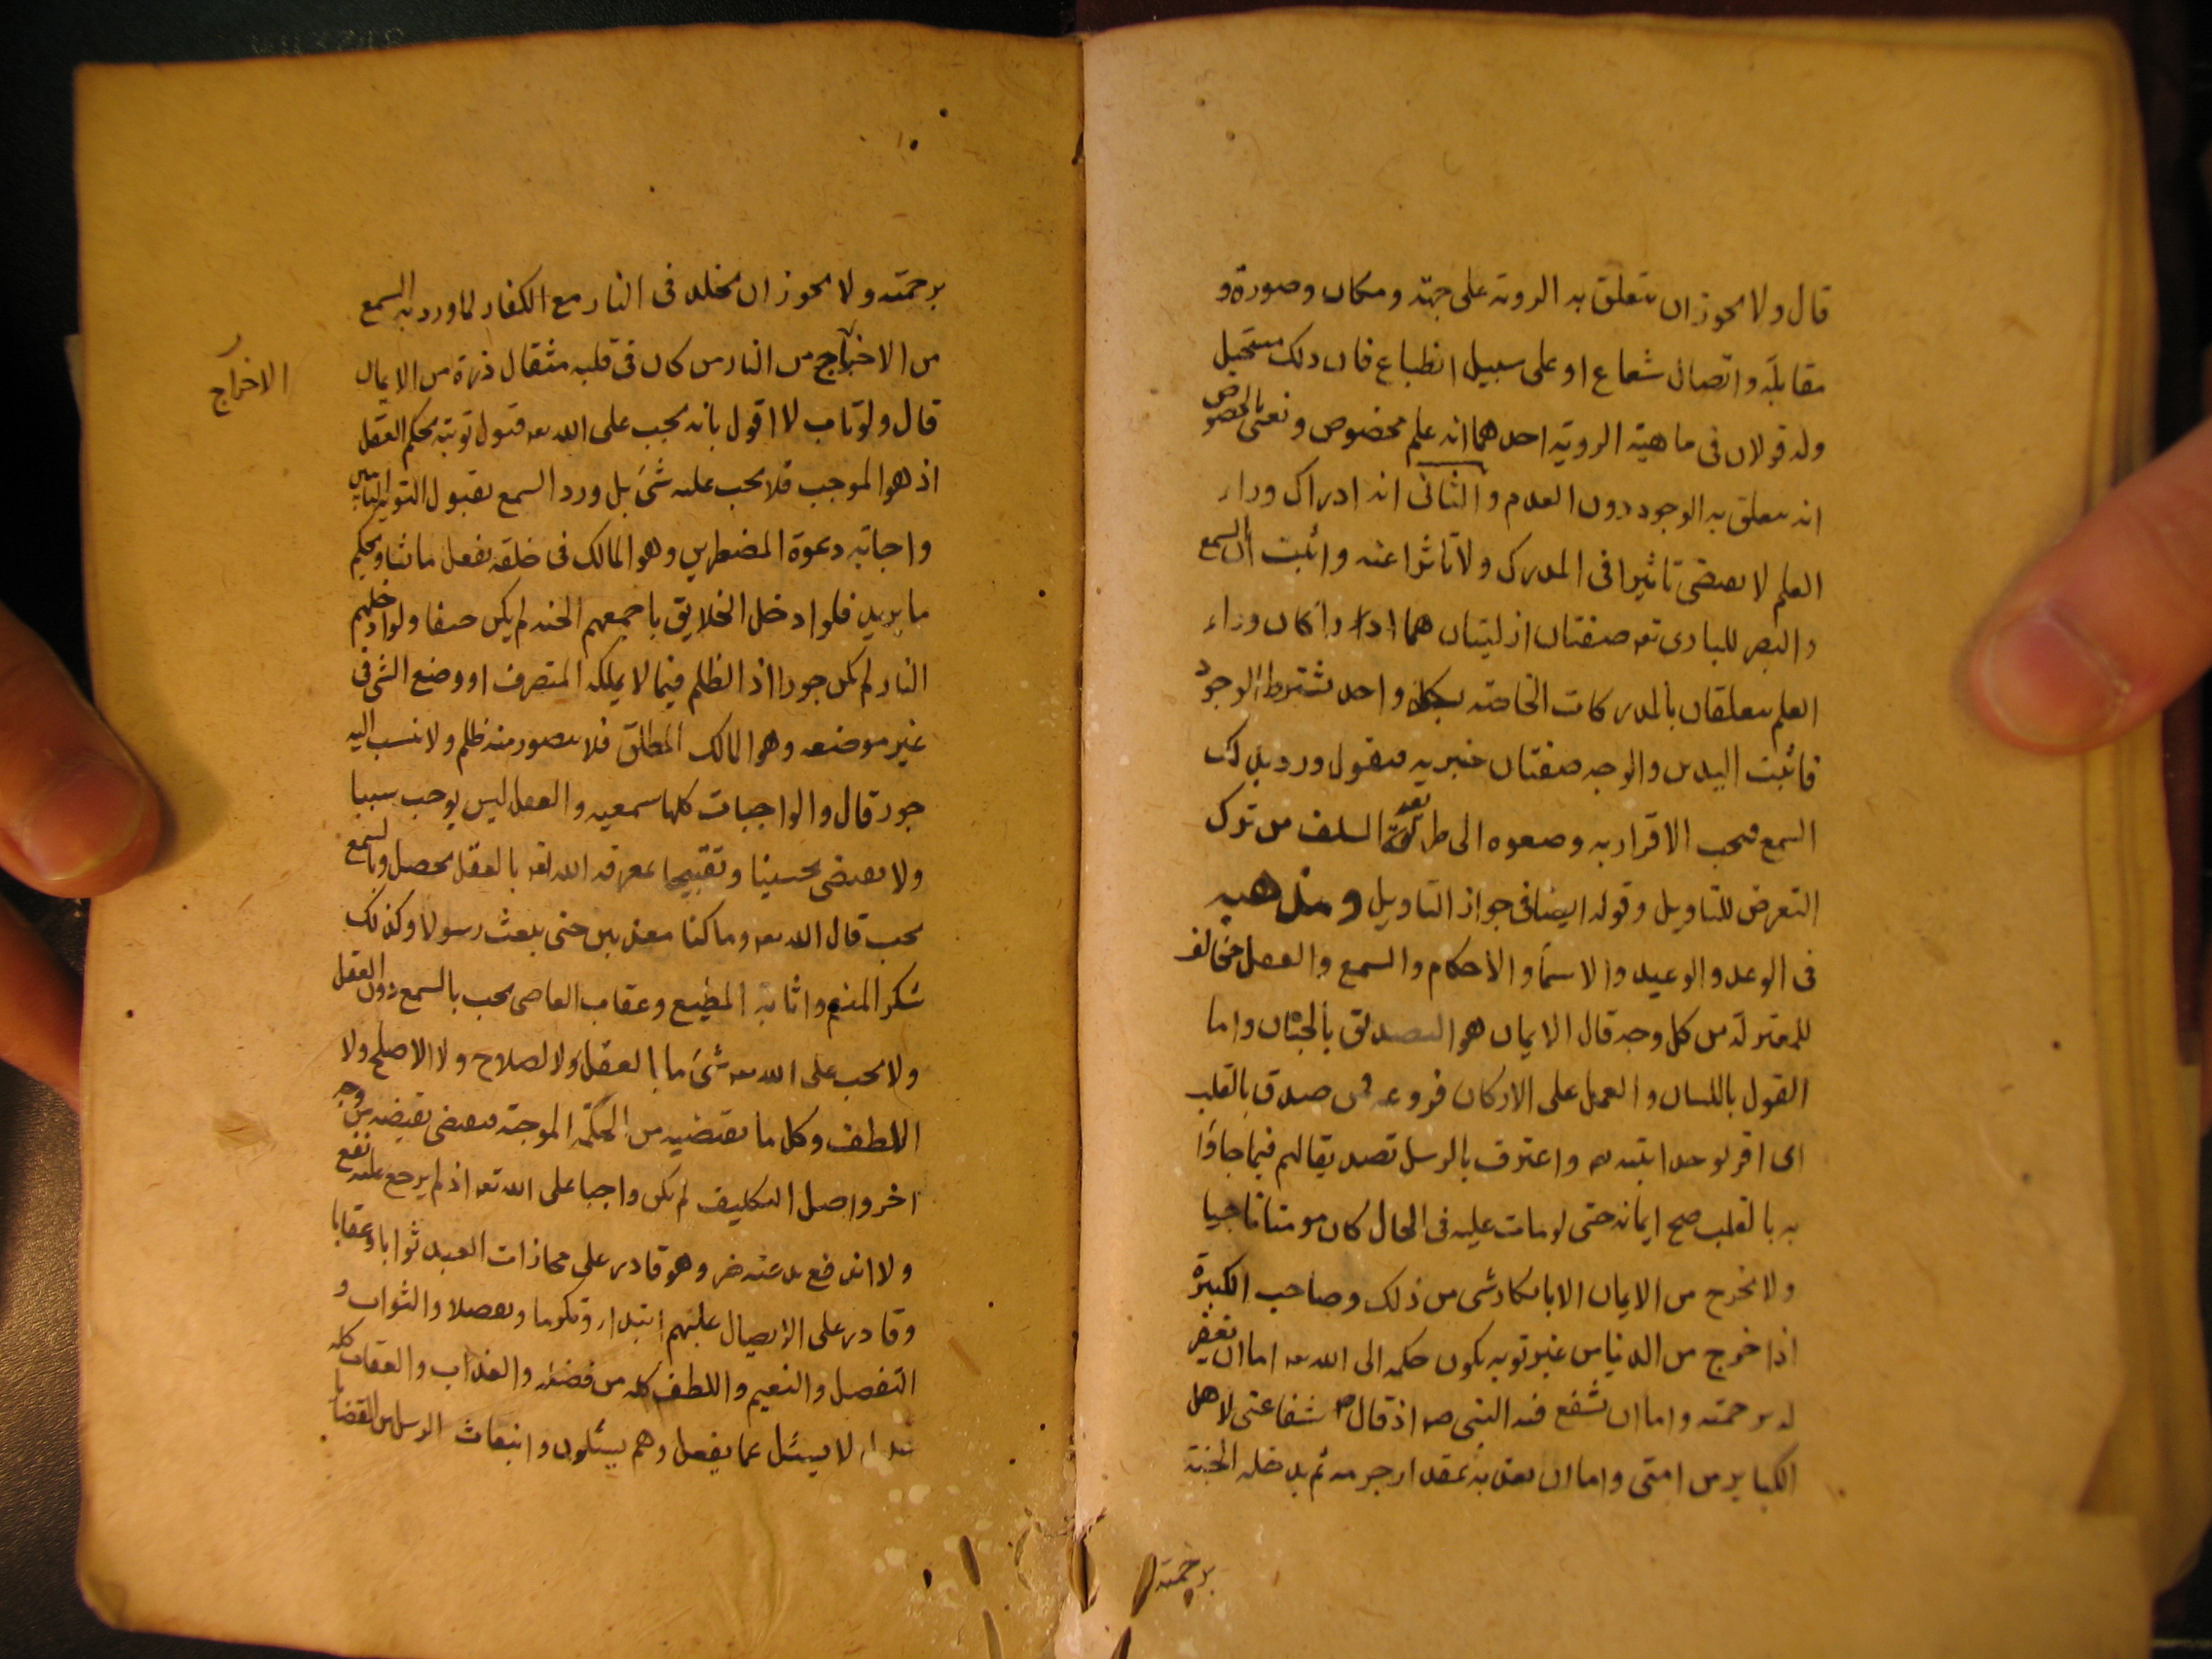 قال ولا يجوز ان يتعلق به الروية على جهة ومكان وصورة و
مقابلة واتصال شعاع او على سبيل انطباع فان ذلك مستحيل
وله قولان فى ماهية الروية احدهما انه علم مخصوص ونعنى بالخصوص
انه يتعلق به الوجود دون العدم والثانى انه ادراك وراء
العلم لا يقتضى تاثيرا فى المدرك ولا تاثرا عنه واثبت ان السمع
والبصر للبارى تعه صفتان ازليتان هما ادراكان وراء
العلم يتعلقان بالمدركات الخاصة بكل واحد بشرط الوجود
فاثبت اليدين والوجه صفتان خبرية فيقول ورد بذلك
السمع فيجب الاقرار به وصغوه الى طريقة السلف من ترك
التعرض للتاويل وقوله ايضا فى جواز التاويل ومذهبه
فى الوعد والوعيد والاسمآ والاحكام والسمع والعقل مخالف
للمعتزلة من كل وجه قال الايمان هو التصديق بالجنان واما
القول باللسان والعمل على الاركان فروعه فمن صدق بالقلب
اى اقر بوحدانيته تعه واعترف بالرسل تصديقا لهم فيما جاؤا
به بالقلب صح ايمانه حتى لو مات عليه فى الحال كان مومنا ناجيا
ولا يخرج من الايمان الا بانكار شى من ذلك وصاحب الكبيرة
اذا خرج من الدنيا من غير توبة يكون حكمه الى الله تعه اما ان يغفر
له برحمته واما ان يشفع فيه النبى صم اذ قال صم شفاعتى لاهل
الكباير من امتى واما ان يعذبه بمقدار جرمه ثم يدخله الجنة
برحمته
برحمته ولا يجوز ان يخلد فى النار مع الكفار لما ورد به السمع
من الاخراج من النار من كان فى قلبه مثقال ذرة من الايمان
الاخراج
قال ولو تاب لا اقول بانه يجب على الله تعه قبول توبته بحكم العقل
اذ هو الموجب فلا يجب عليه شئ بل ورد السمع بقبول التوبة التايبين
واجابة دعوة المضطرين وهو المالك فى خلقه يفعل ما يشا ويحكم
ما يريد فلو ادخل الخلايق باجمعهم الجنة لم يكن حيفا ولو ادخلهم
النار لم يكن جورا اذ الظلم فيما لا يملكه المتصرف او وضع الشى فى
غير موضعه وهو المالك المطلق فلا يتصور منه ظلم ولا ينسب اليه
جور قال والواجبات كلها سمعيه والعقل ليس يوجب سببا
ولا يقتضى تحسينا وتقبيحا بمعرفة الله تعه بالعقل يحصل وبالسمع
يجب قال الله تعه وما كنا معذبين حتى نبعث رسولا وكذلك
شكر المنعم واثابة المطيع وعقاب العاصى يجب بالسمع دون العقل
ولا يجب على الله تعه شئ ما بالعقل ولا لصلاح ولا الاصلح ولا
اللطف وكل ما يقتضيه من الحكمة الموجبة فيقتضى نقيضه من وجه
اخر واصل التكليف لم يكن واجبا على الله تعه اذ لم يرجع عليه نفع
ولا اندفع به عنه ضر وهو قادر على مجازات العبد ثوابا وعقابا
وقادر على الايصال عليهم ابتداء وتكرما وتفضلا والثواب و
التفضل والنعيم واللطف كله من فضله والعذاب والعقاب كله
عدل لا يسئل عما يفعل وهم يسئلون وانبعاث الرسل من القضايا